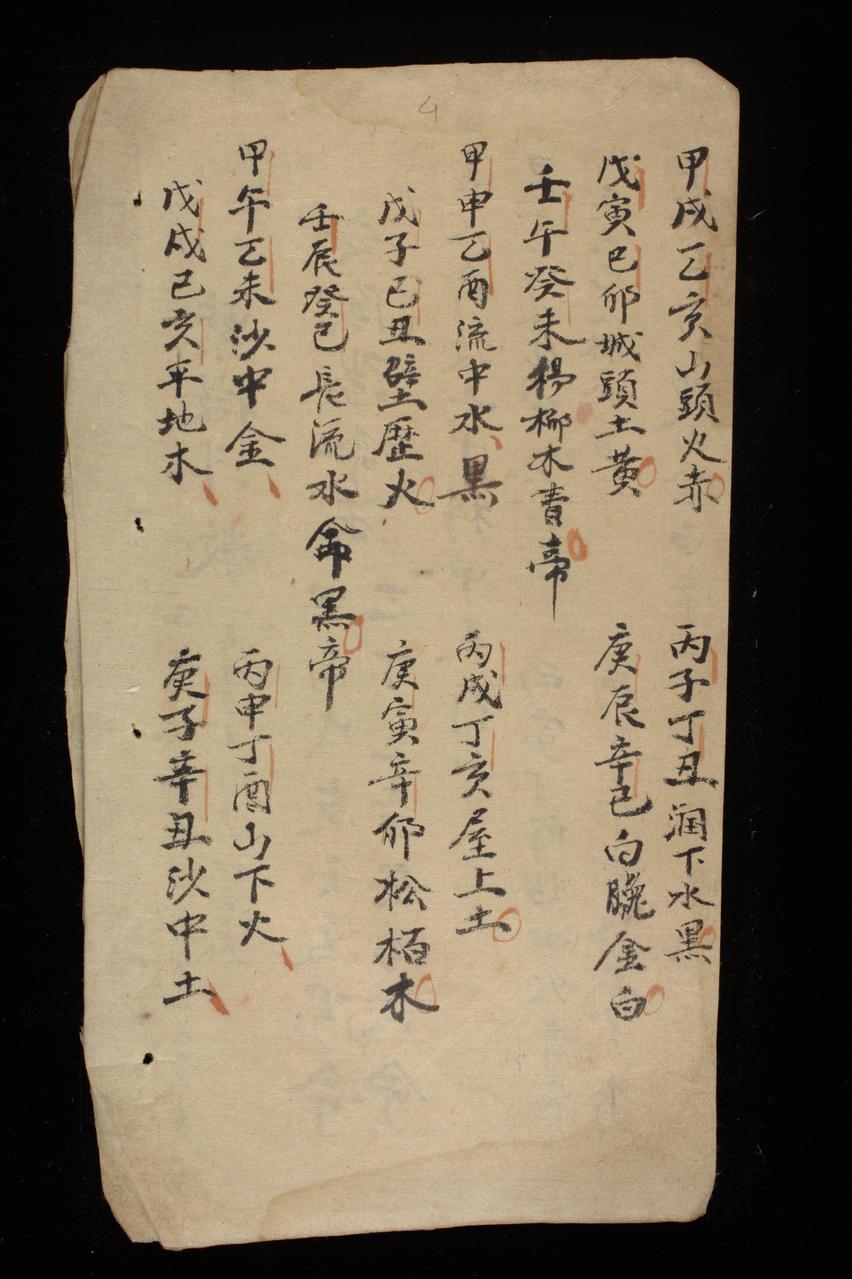 4
甲戌乙亥山頭火赤
丙子丁丑润下水黑
戊寅己卯城頭土黄
庚辰辛巳白臈金白
壬午癸未楊柳木青帝
甲申乙酉流中水黑
丙戌丁亥屋上土
戊子己丑壁歷火
庚寅辛卯松栢木
壬辰癸巳長流水命黑帝
甲午乙未沙中金
丙申丁酉山下火
戊戌己亥平地木
庚子辛丑沙中土